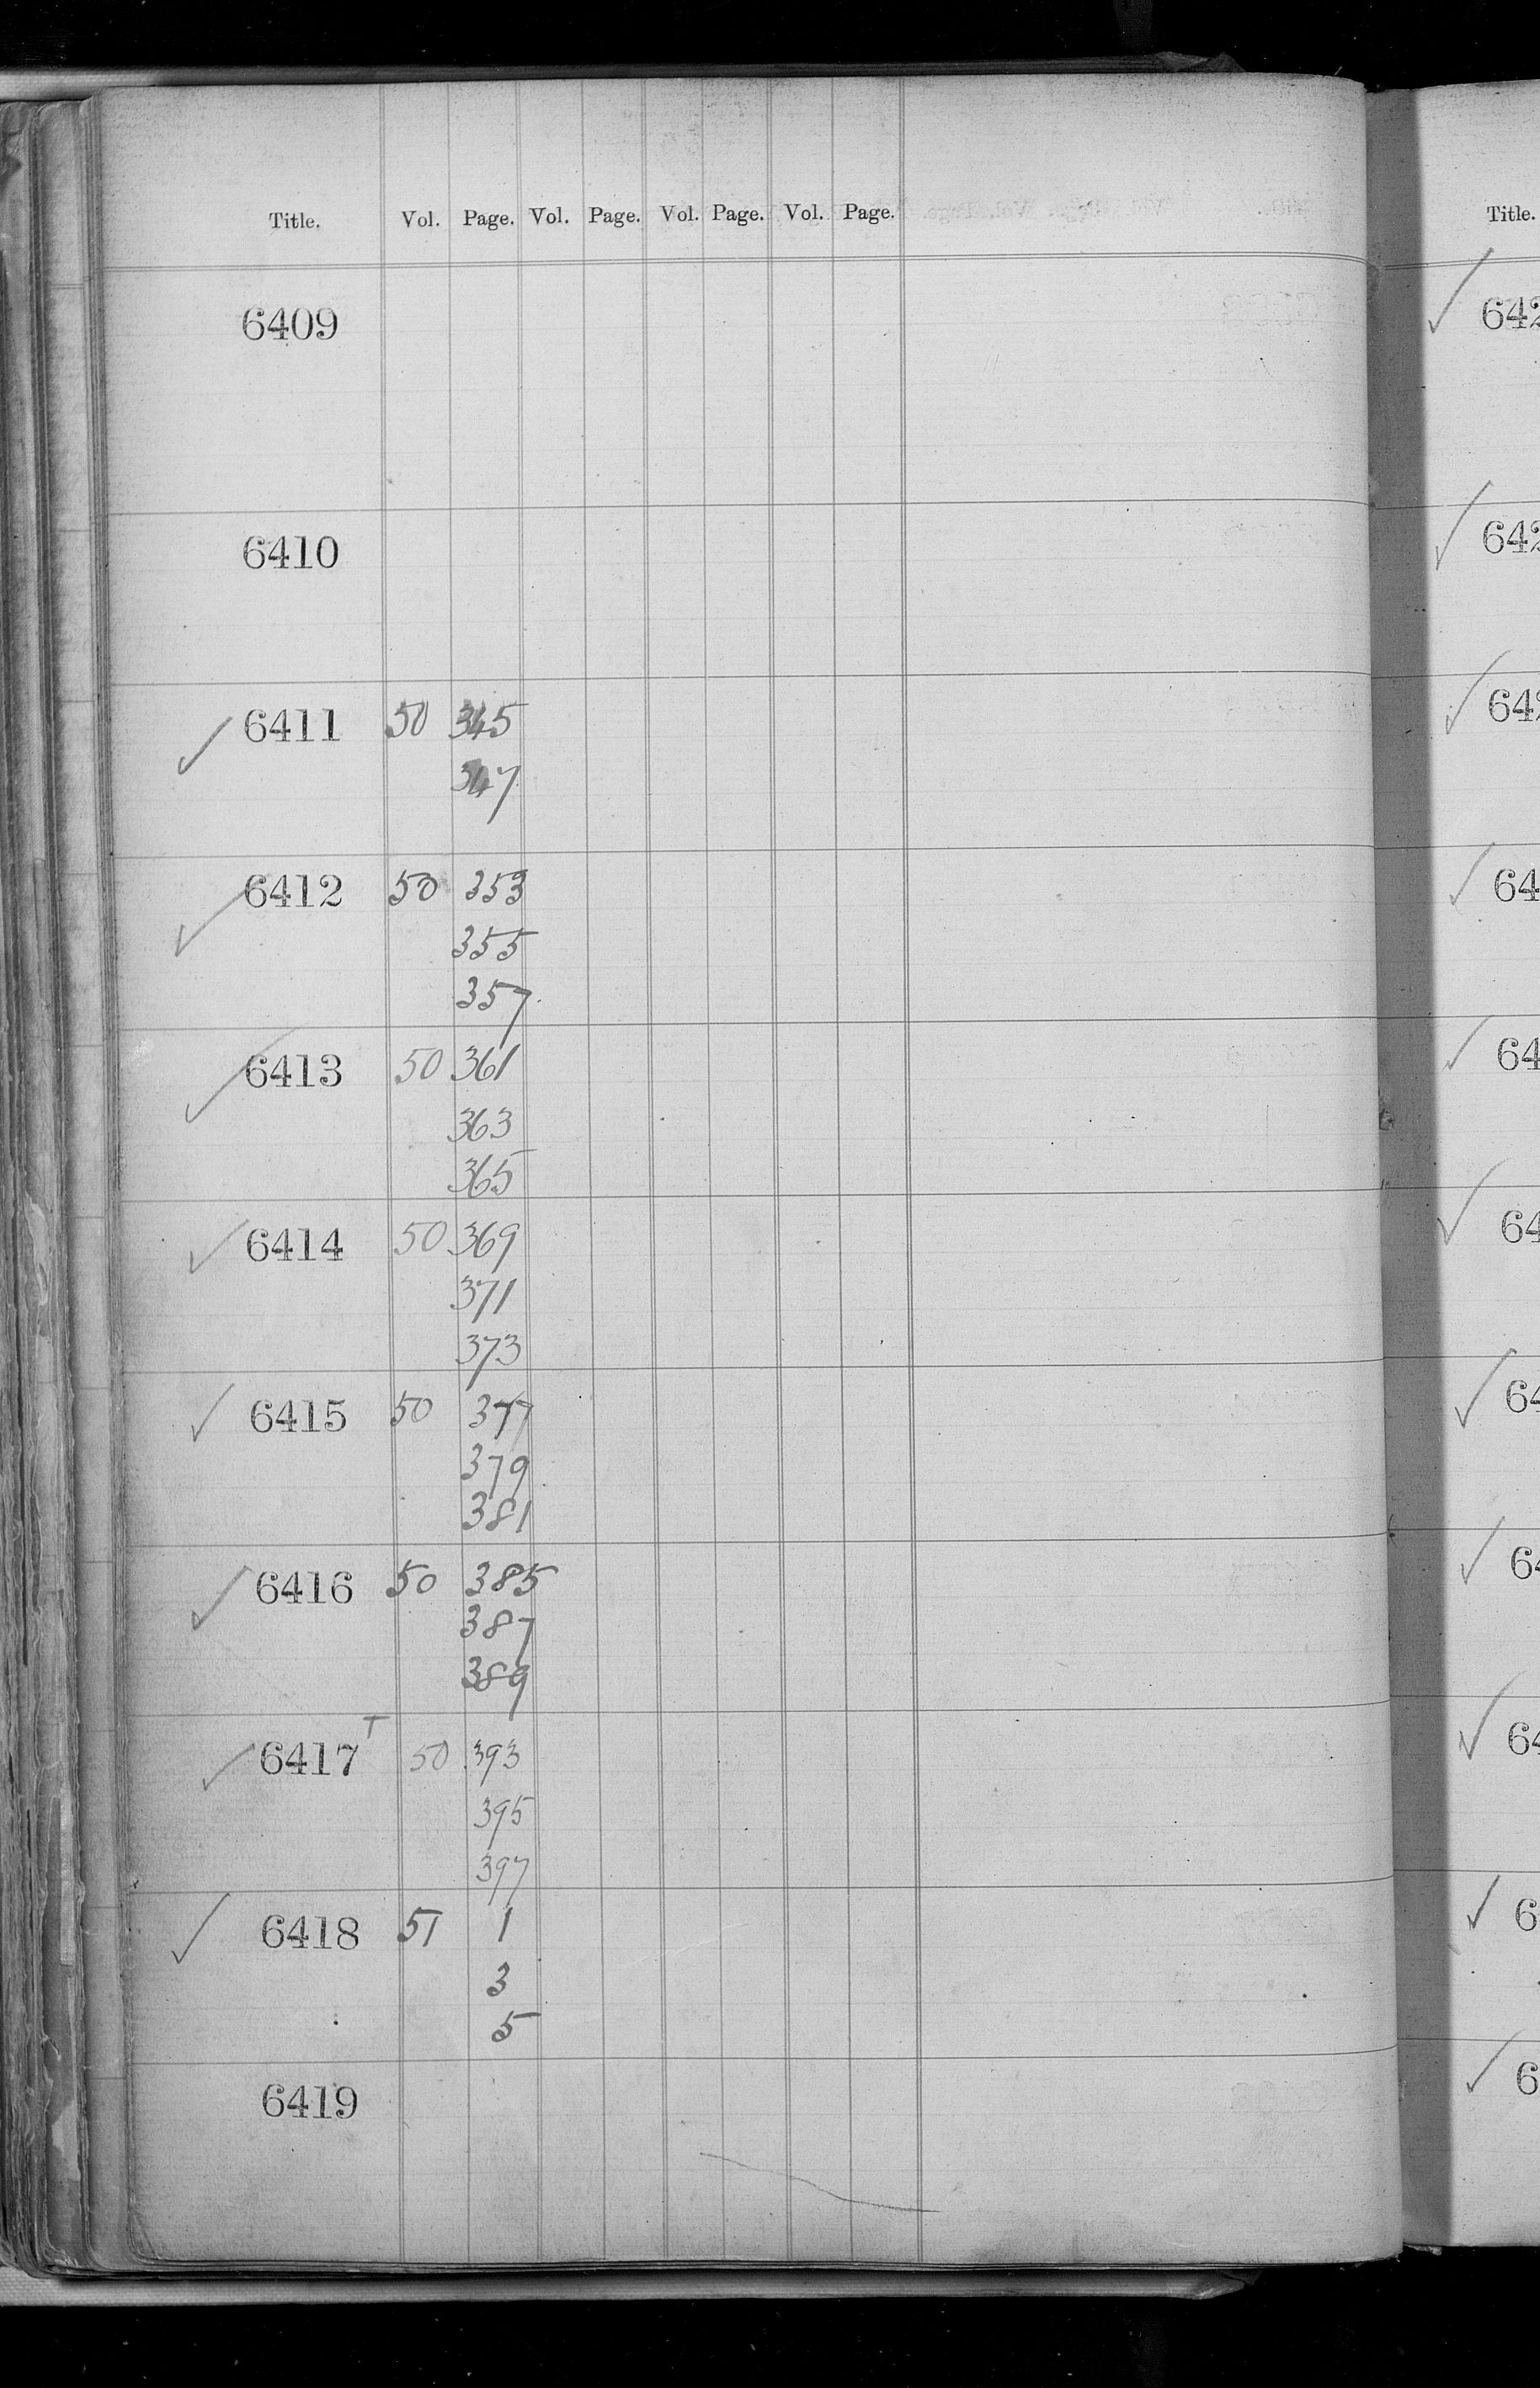 Title. Vol. Page. Vol. Page. Vol. Page. Vol. Page.
6409
6410
✓ 6411 50 345
347
✓ 6412 50 353
355
357
✓ 6413 50 361
363
365
✓ 6414 50 369
371
373
✓ 6415 50 377
379
381
✓ 6416 50 385
387
389
✓ 6417 T 50 393
395
397
✓ 6418 51 1
3
5
6419
Title.